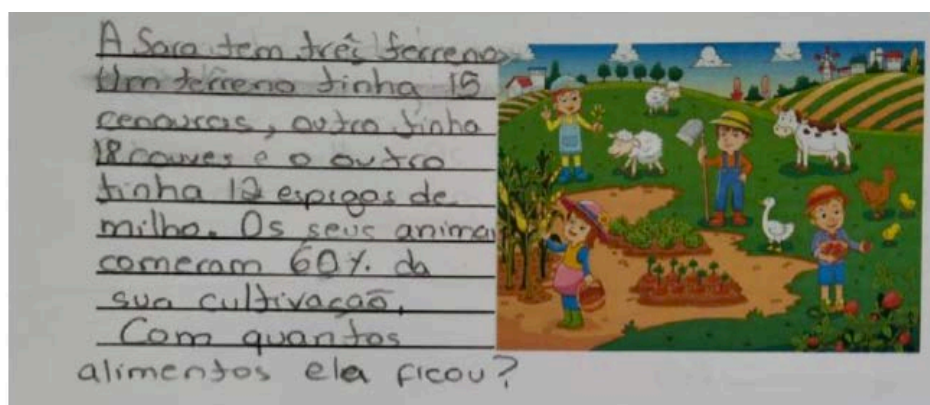 A Sara tem três terrenos
Um terreno tinha 15
cenouras, outro tinha
18 couves e o outro
tinha 12 espigas de
milho. Os seus animai
comeram 60% da
sua cultivação.
Com quantos
alimentos ela ficou?